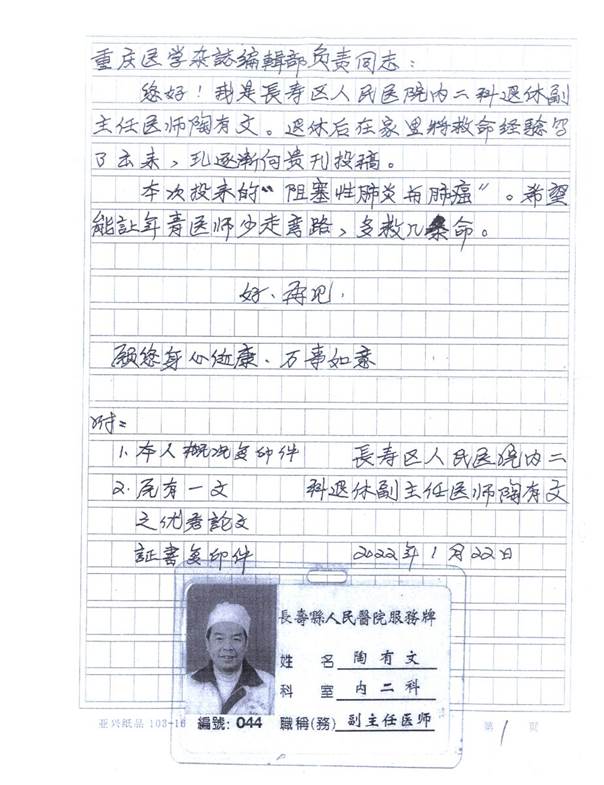 重庆医学杂誌编輯部负责同志：
您好！我是長寿区人民医院内二科退休副
主任医师陶有文。退休后在家里将救命经驗写
了出来，現逐渐向贵刊投稿。
本次投来的“阻塞性肺炎与肺癌”。希望
能让年青医师少走弯路，多救几条命。
好、再见，
願您身心健康、万事如意
附：
1. 本人概况复印件 長寿区人民医院内二
2. 原有一文 科退休副主任医师陶有文
之优秀论文
証書复印件 2022年1月22日
長壽縣人民醫院服務牌
姓 名 陶有文
科 室 内二科
編號：044 職稱(務) 副主任医师
亚兴纸品 103-16 第1頁